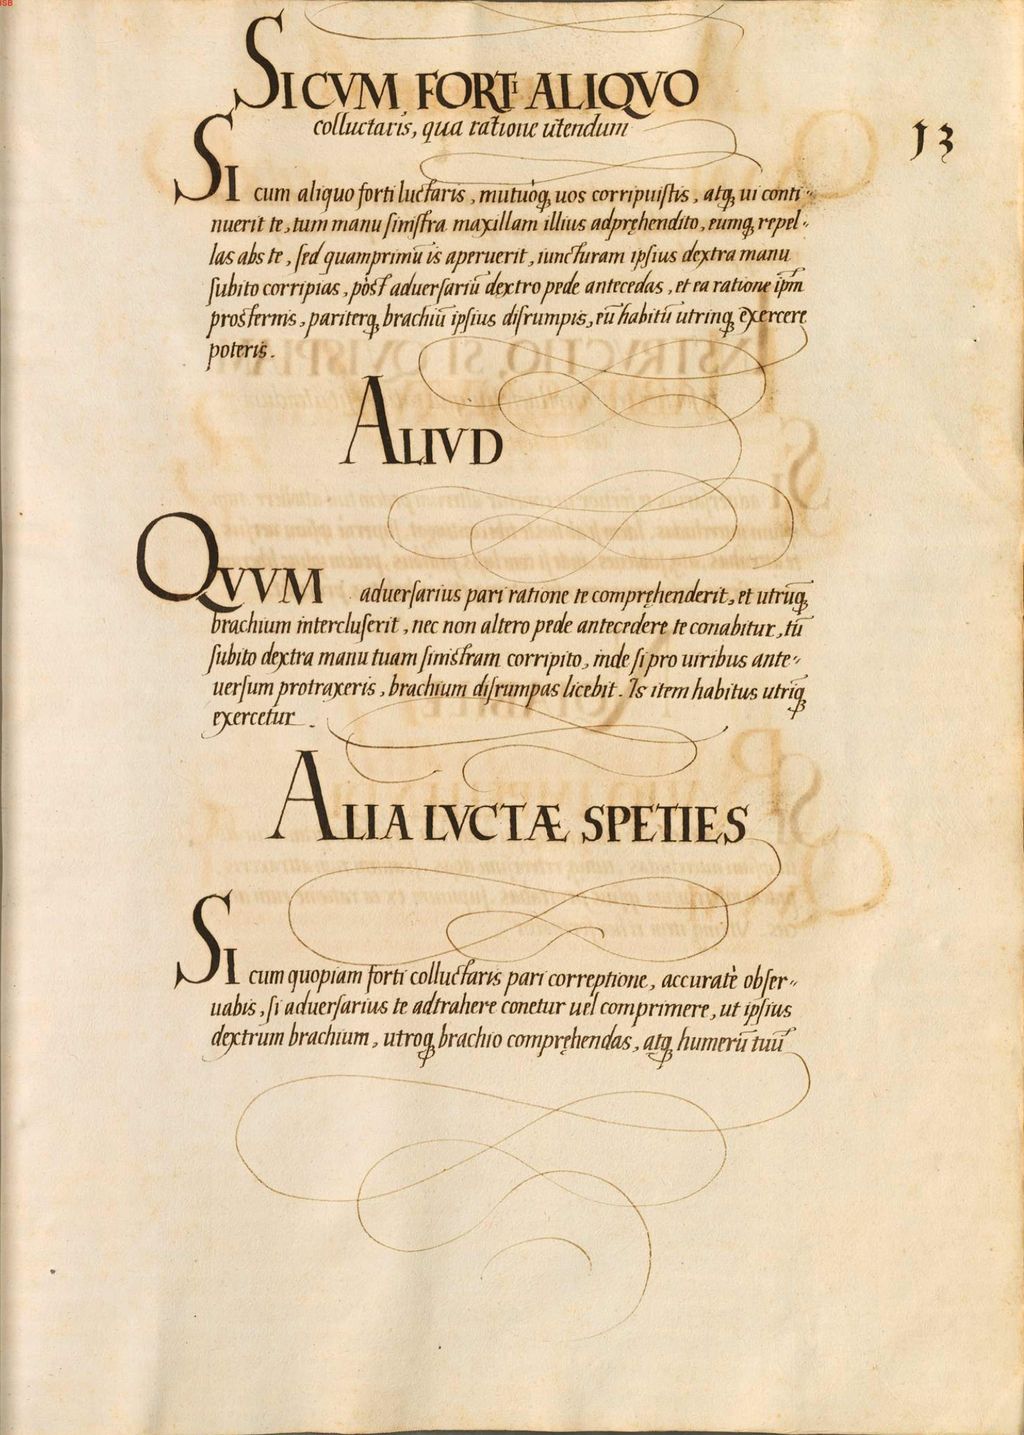 SI CVM FORTI ALIQVO
colluctaris, qua ratione utendum
13
SI cum aliquo forti luctaris, mutuoq̨ uos corripuistis, atq̨ ui conti„
nuerit te, tum manu sinistra maxillam illius adpręhendito, eumq̨ repel„
las abs te, sed quamprimū is aperuerit, iuncturam ipsius dextra manu
subito corripias, pòst aduersariū dextro pede antecedas, et ea ratione ip̄m
prosternis, pariterq̨ brachiū ipsius disrumpis, eū habitū utrinq̨ exercere
poteris.
ALIVD
QVVM aduersarius pari ratione te compręhenderit, et utrūq̨
brachium intercluserit, nec non altero pede antecedere te conabitur, tū
subito dextra manu tuam sinistram corripito, inde si pro uiribus ante„
uersum protraxeris, brachium disrumpas licebit. Is item habitus utriq̨
exercetur.
ALIA LVCTÆ SPETIES
SI cum quopiam forti colluctaris pari correptione, accuratè obser„
uabis, si aduersarius te adtrahere conetur uel comprimere, ut ipsius
dextrum brachium, utroq̨ brachio compręhendas, atq̨ humerū tuū